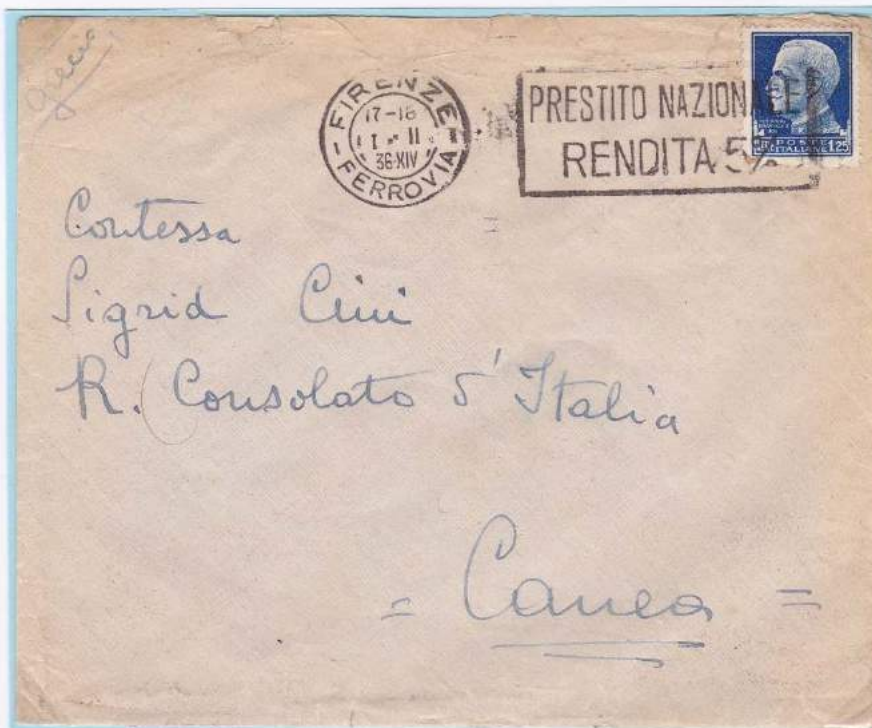 Grecia
FIRENZE
17-18
1 - II
36 XIV
FERROVIA
PRESTITO NAZIONALE
RENDITA 5%
POSTE
ITALIANE 1,25
Contessa
Sigrid Cini
R. Consolato d'Italia
= Canea =